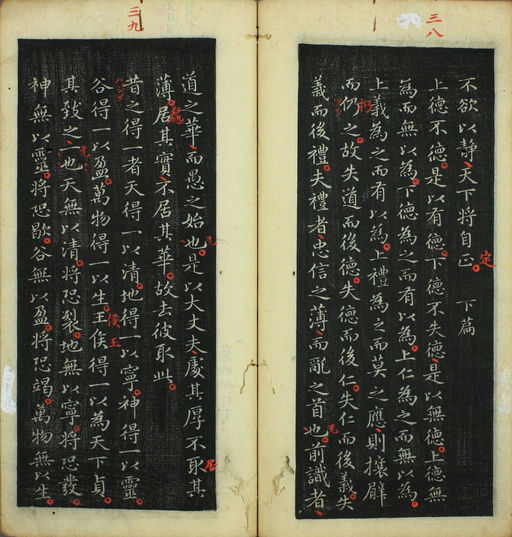 三八
不欲以靜天下將自正 下篇
定
上德不德是以有德下德不失德是以無德上德無
為而無以為下德為之而有以為上仁為之而無以為
上義為之而有以為上禮為之而莫之應則攘臂
扔
而仍之故失道而後德失德而後仁失仁而後義失
義而後禮夫禮者忠信之薄而亂之首也前識者
无
三九
道之華而愚之始也是以大丈夫處其厚不取其
无
居
薄居其實不居其華故去彼取此
昔之得一者天得一以清地得一以寧神得一以靈
谷得一以盈萬物得一以生王侯得一以為天下貞
侯王
其致之也天無以清將恐裂地無以寧將恐發
神無以靈將恐歇谷無以盈將恐竭萬物無以生